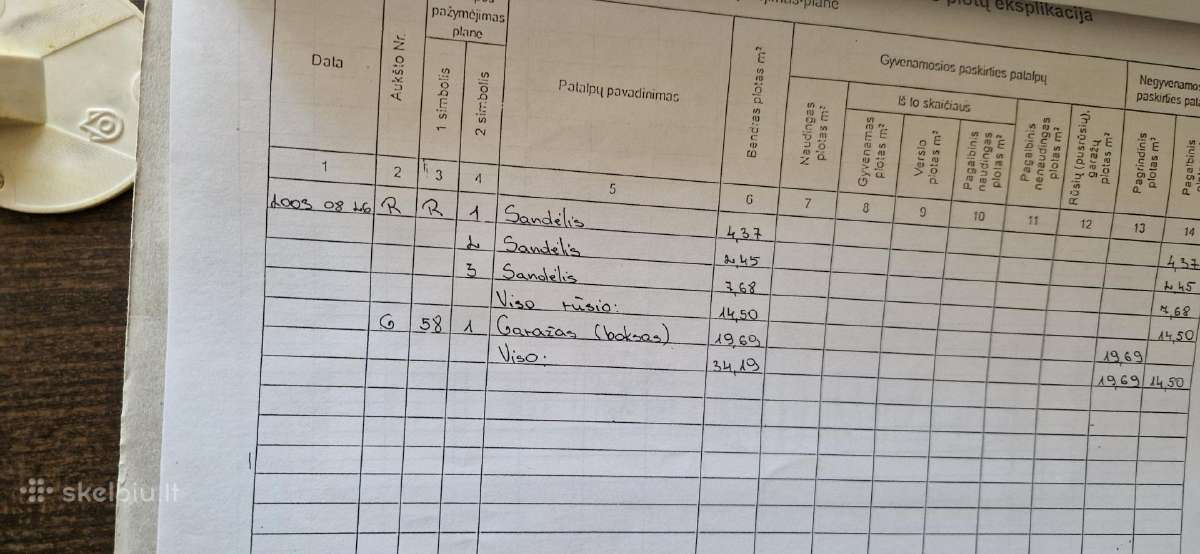 plotų eksplikacija
pažymėjimas plane
Data
Aukšto Nr.
1 simbolis
2 simbolis
Patalpų pavadinimas
Bendras plotas m²
Gyvenamosios paskirties patalpų
Iš to skaičiaus
Naudingas plotas m²
Gyvenamas plotas m²
Verslo plotas m²
Pagalbinis naudingas plotas m²
Pagalbinis nenaudingas plotas m²
Rūsių (pusrūsių), garažų plotas m²
Negyvenamos
paskirties pata
Pagrindinis plotas m²
Pagalbinis
1 2 3 4 5 6 7 8 9 10 11 12 13 14
2003 08 26 R R 1 Sandėlis 4,37 4,37
2 Sandėlis 2,45 2,45
3 Sandėlis 7,68 7,68
Viso rūsio: 14,50 14,50
G 58 1 Garažas (boksas) 19,69 19,69
Viso: 34,19 19,69 14,50
skelbiu.lt